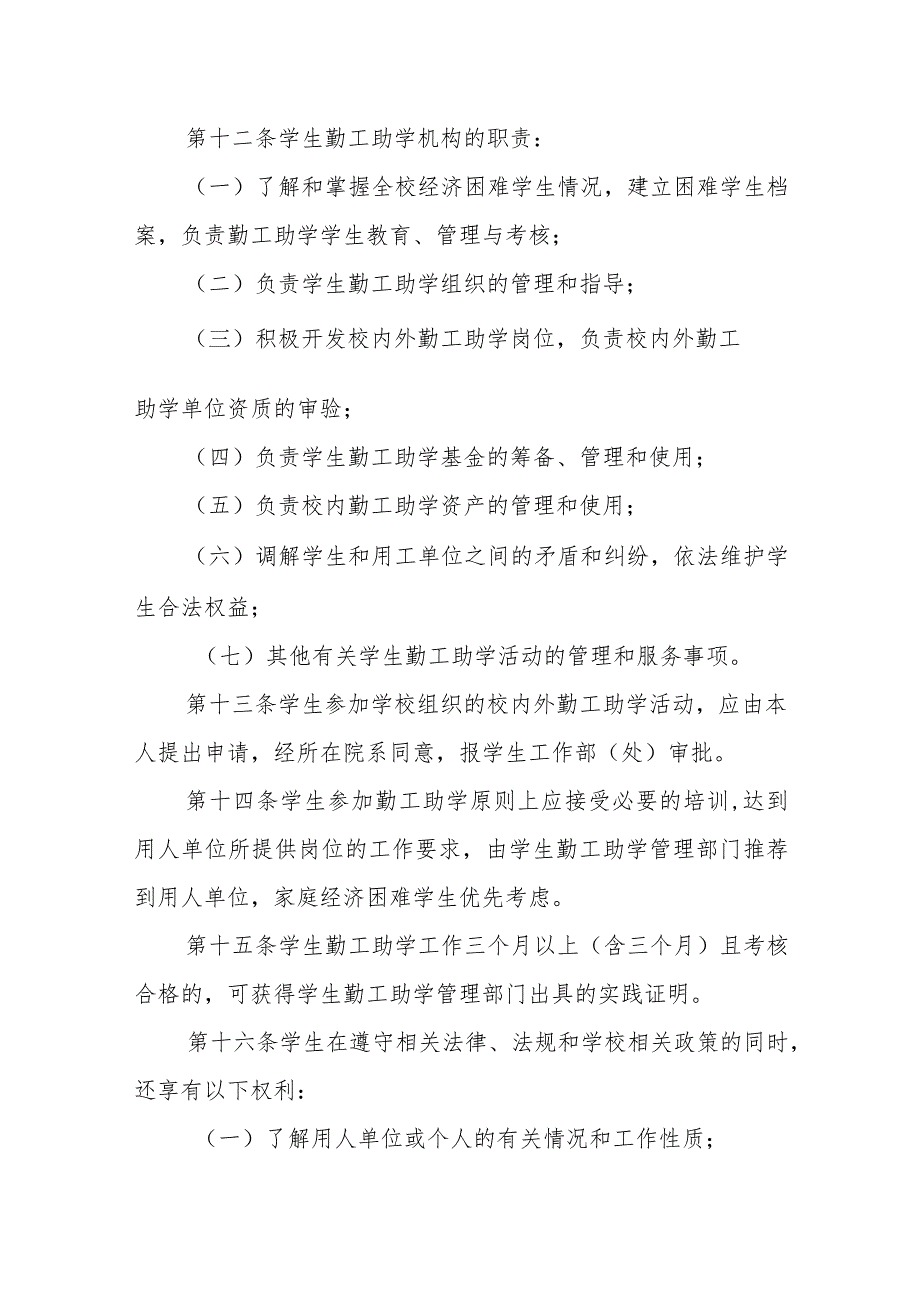 第十二条学生勤工助学机构的职责：
（一）了解和掌握全校经济困难学生情况，建立困难学生档
案，负责勤工助学学生教育、管理与考核；
（二）负责学生勤工助学组织的管理和指导；
（三）积极开发校内外勤工助学岗位，负责校内外勤工
助学单位资质的审验；
（四）负责学生勤工助学基金的筹备、管理和使用；
（五）负责校内勤工助学资产的管理和使用；
（六）调解学生和用工单位之间的矛盾和纠纷，依法维护学
生合法权益；
（七）其他有关学生勤工助学活动的管理和服务事项。
第十三条学生参加学校组织的校内外勤工助学活动，应由本
人提出申请，经所在院系同意，报学生工作部（处）审批。
第十四条学生参加勤工助学原则上应接受必要的培训,达到
用人单位所提供岗位的工作要求，由学生勤工助学管理部门推荐
到用人单位，家庭经济困难学生优先考虑。
第十五条学生勤工助学工作三个月以上（含三个月）且考核
合格的，可获得学生勤工助学管理部门出具的实践证明。
第十六条学生在遵守相关法律、法规和学校相关政策的同时，
还享有以下权利：
（一）了解用人单位或个人的有关情况和工作性质；